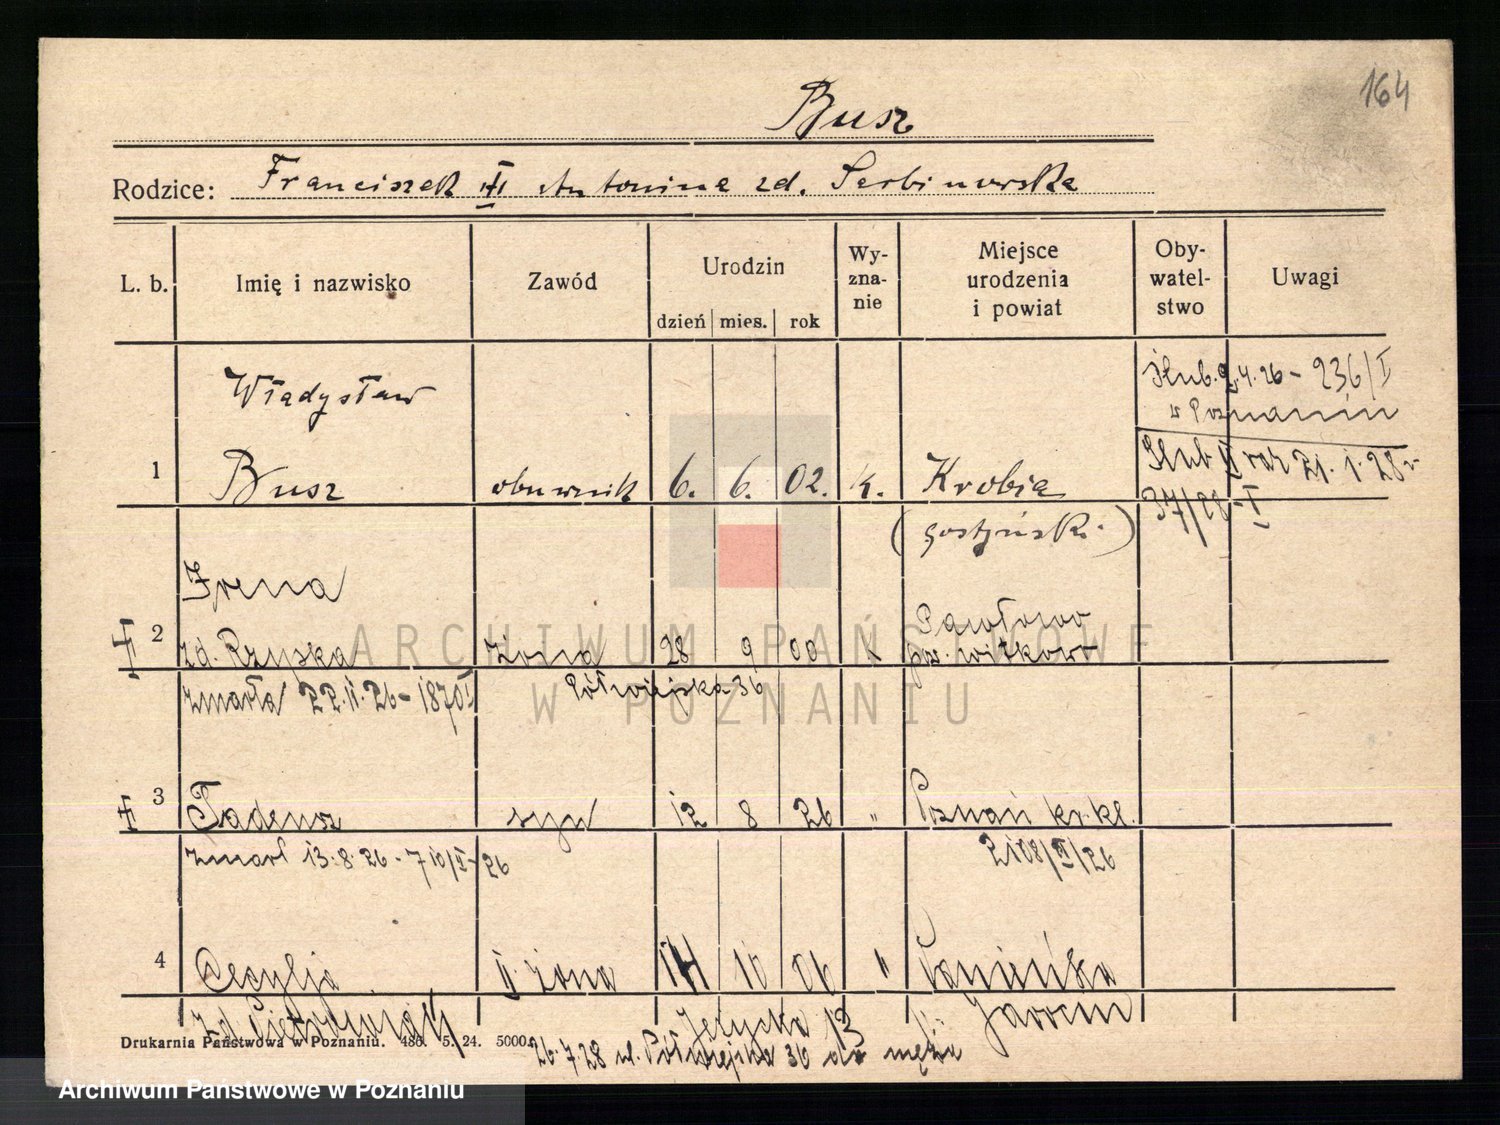 164
Busz
Rodzice: Franciszek Antonina zd. Serbinowska
L. b. Imię i nazwisko Zawód Urodzin dzień mies. rok Wy-zna-nie Miejsce urodzenia i powiat Oby-watel-stwo Uwagi
Ślub. 2.4.26 - 236/I
w Poznaniu
Władysław
1 Busz obuwnik 6. 6. 02. k. Krobia
Ślub II raz 21.1.28
37/28-I
(gostyński)
Irena
Pawłowo
2 zd. Rzyska żona 28 9 00 k pow. Witkowo
zmarła 22.11.26 - 1870/I Półwiejska 36
3 Tadeusz syn 12 8 26 " Poznań kr. kl.
zmarł 13.8.26 - 710/II-26 2108/II/26
4 Cecylja II żona 14 10 06 " Panienka
zd. Jeżycka 13 Jarocin
Drukarnia Państwowa w Poznaniu. 486. 5. 24. 5000.
26.7.28 ul. Półwiejska 36 do męża
ARCHIWUM PAŃSTWOWE
W POZNANIU
Archiwum Państwowe w Poznaniu